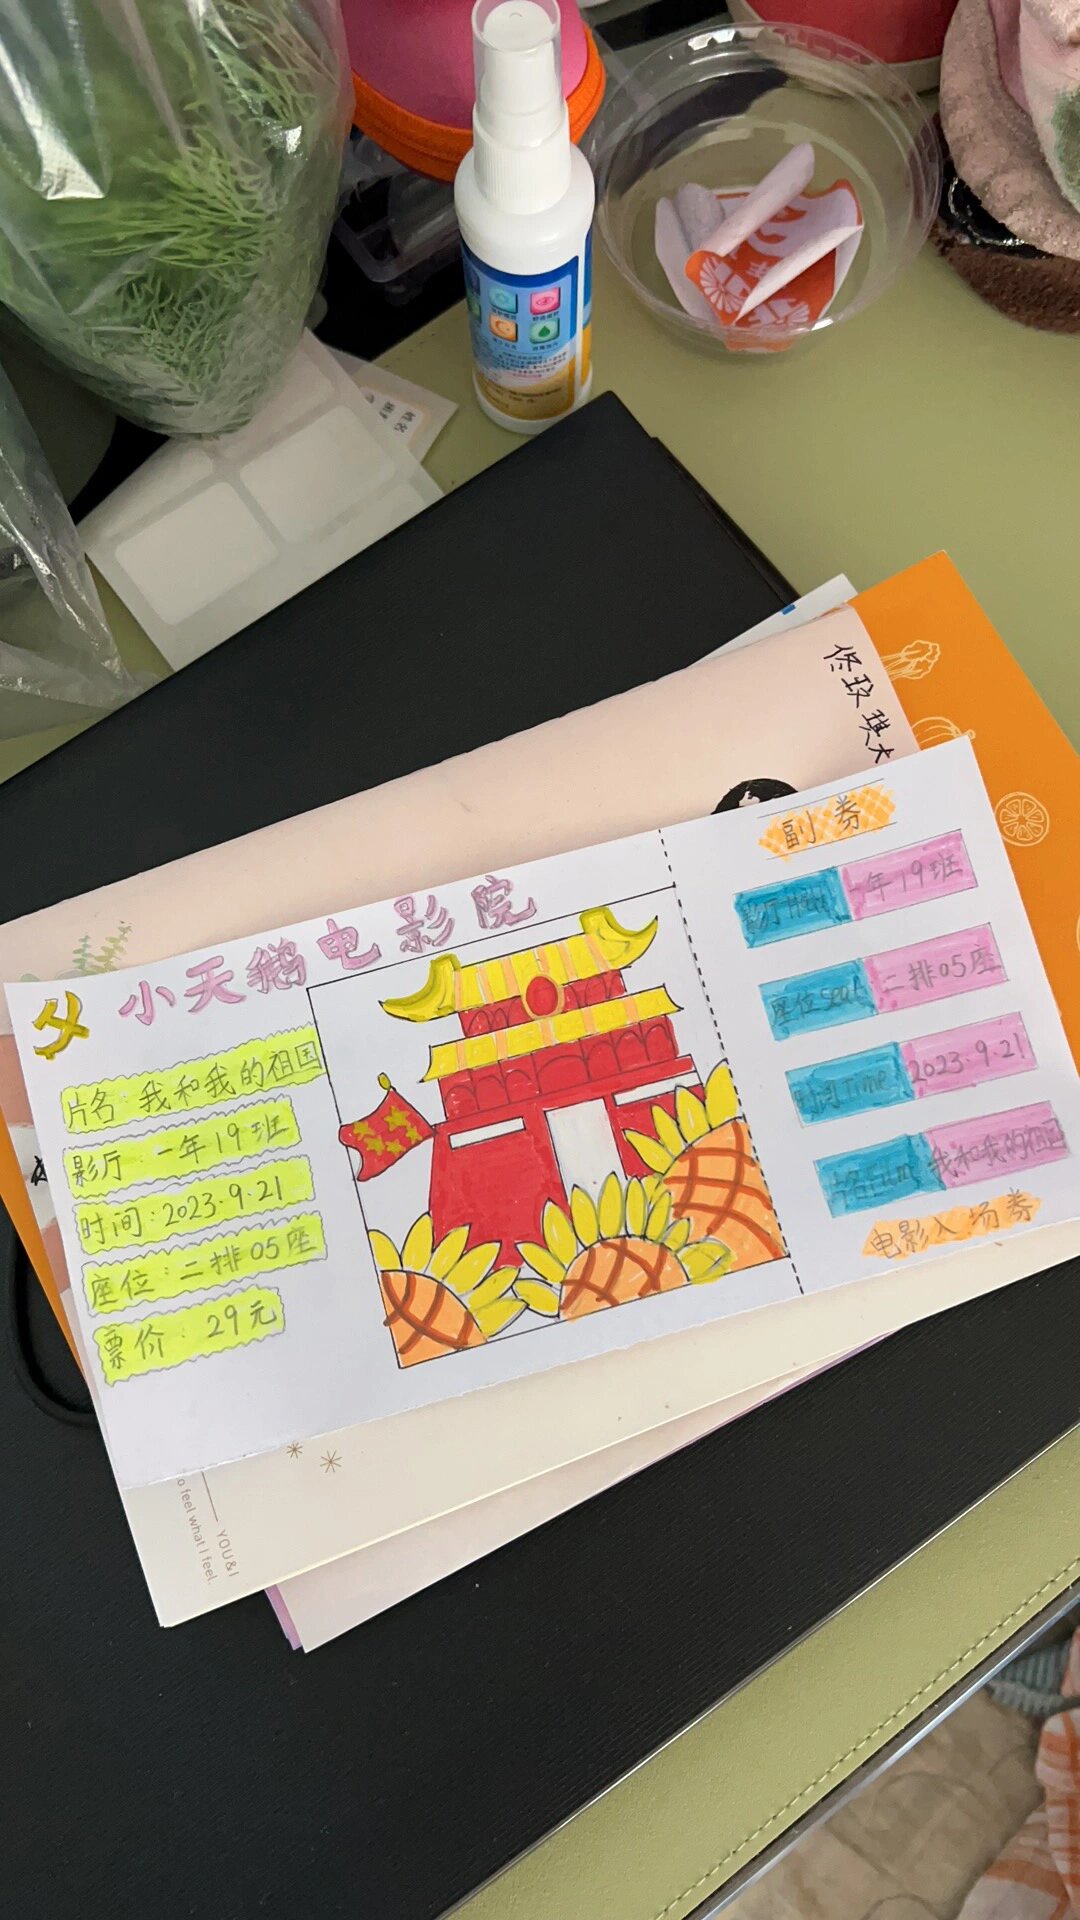 佟玟琪大
小天鹅电影院
片名 我和我的祖国
影厅:一年19班
时间:2023.9.21
座位:二排05座
票价:29元
副券
影厅Hall 一年19班
座位seat 二排05座
时间Time 2023.9.21
片名Film 我和我的祖国
电影入场券
YOU&I
o feel what I feel.